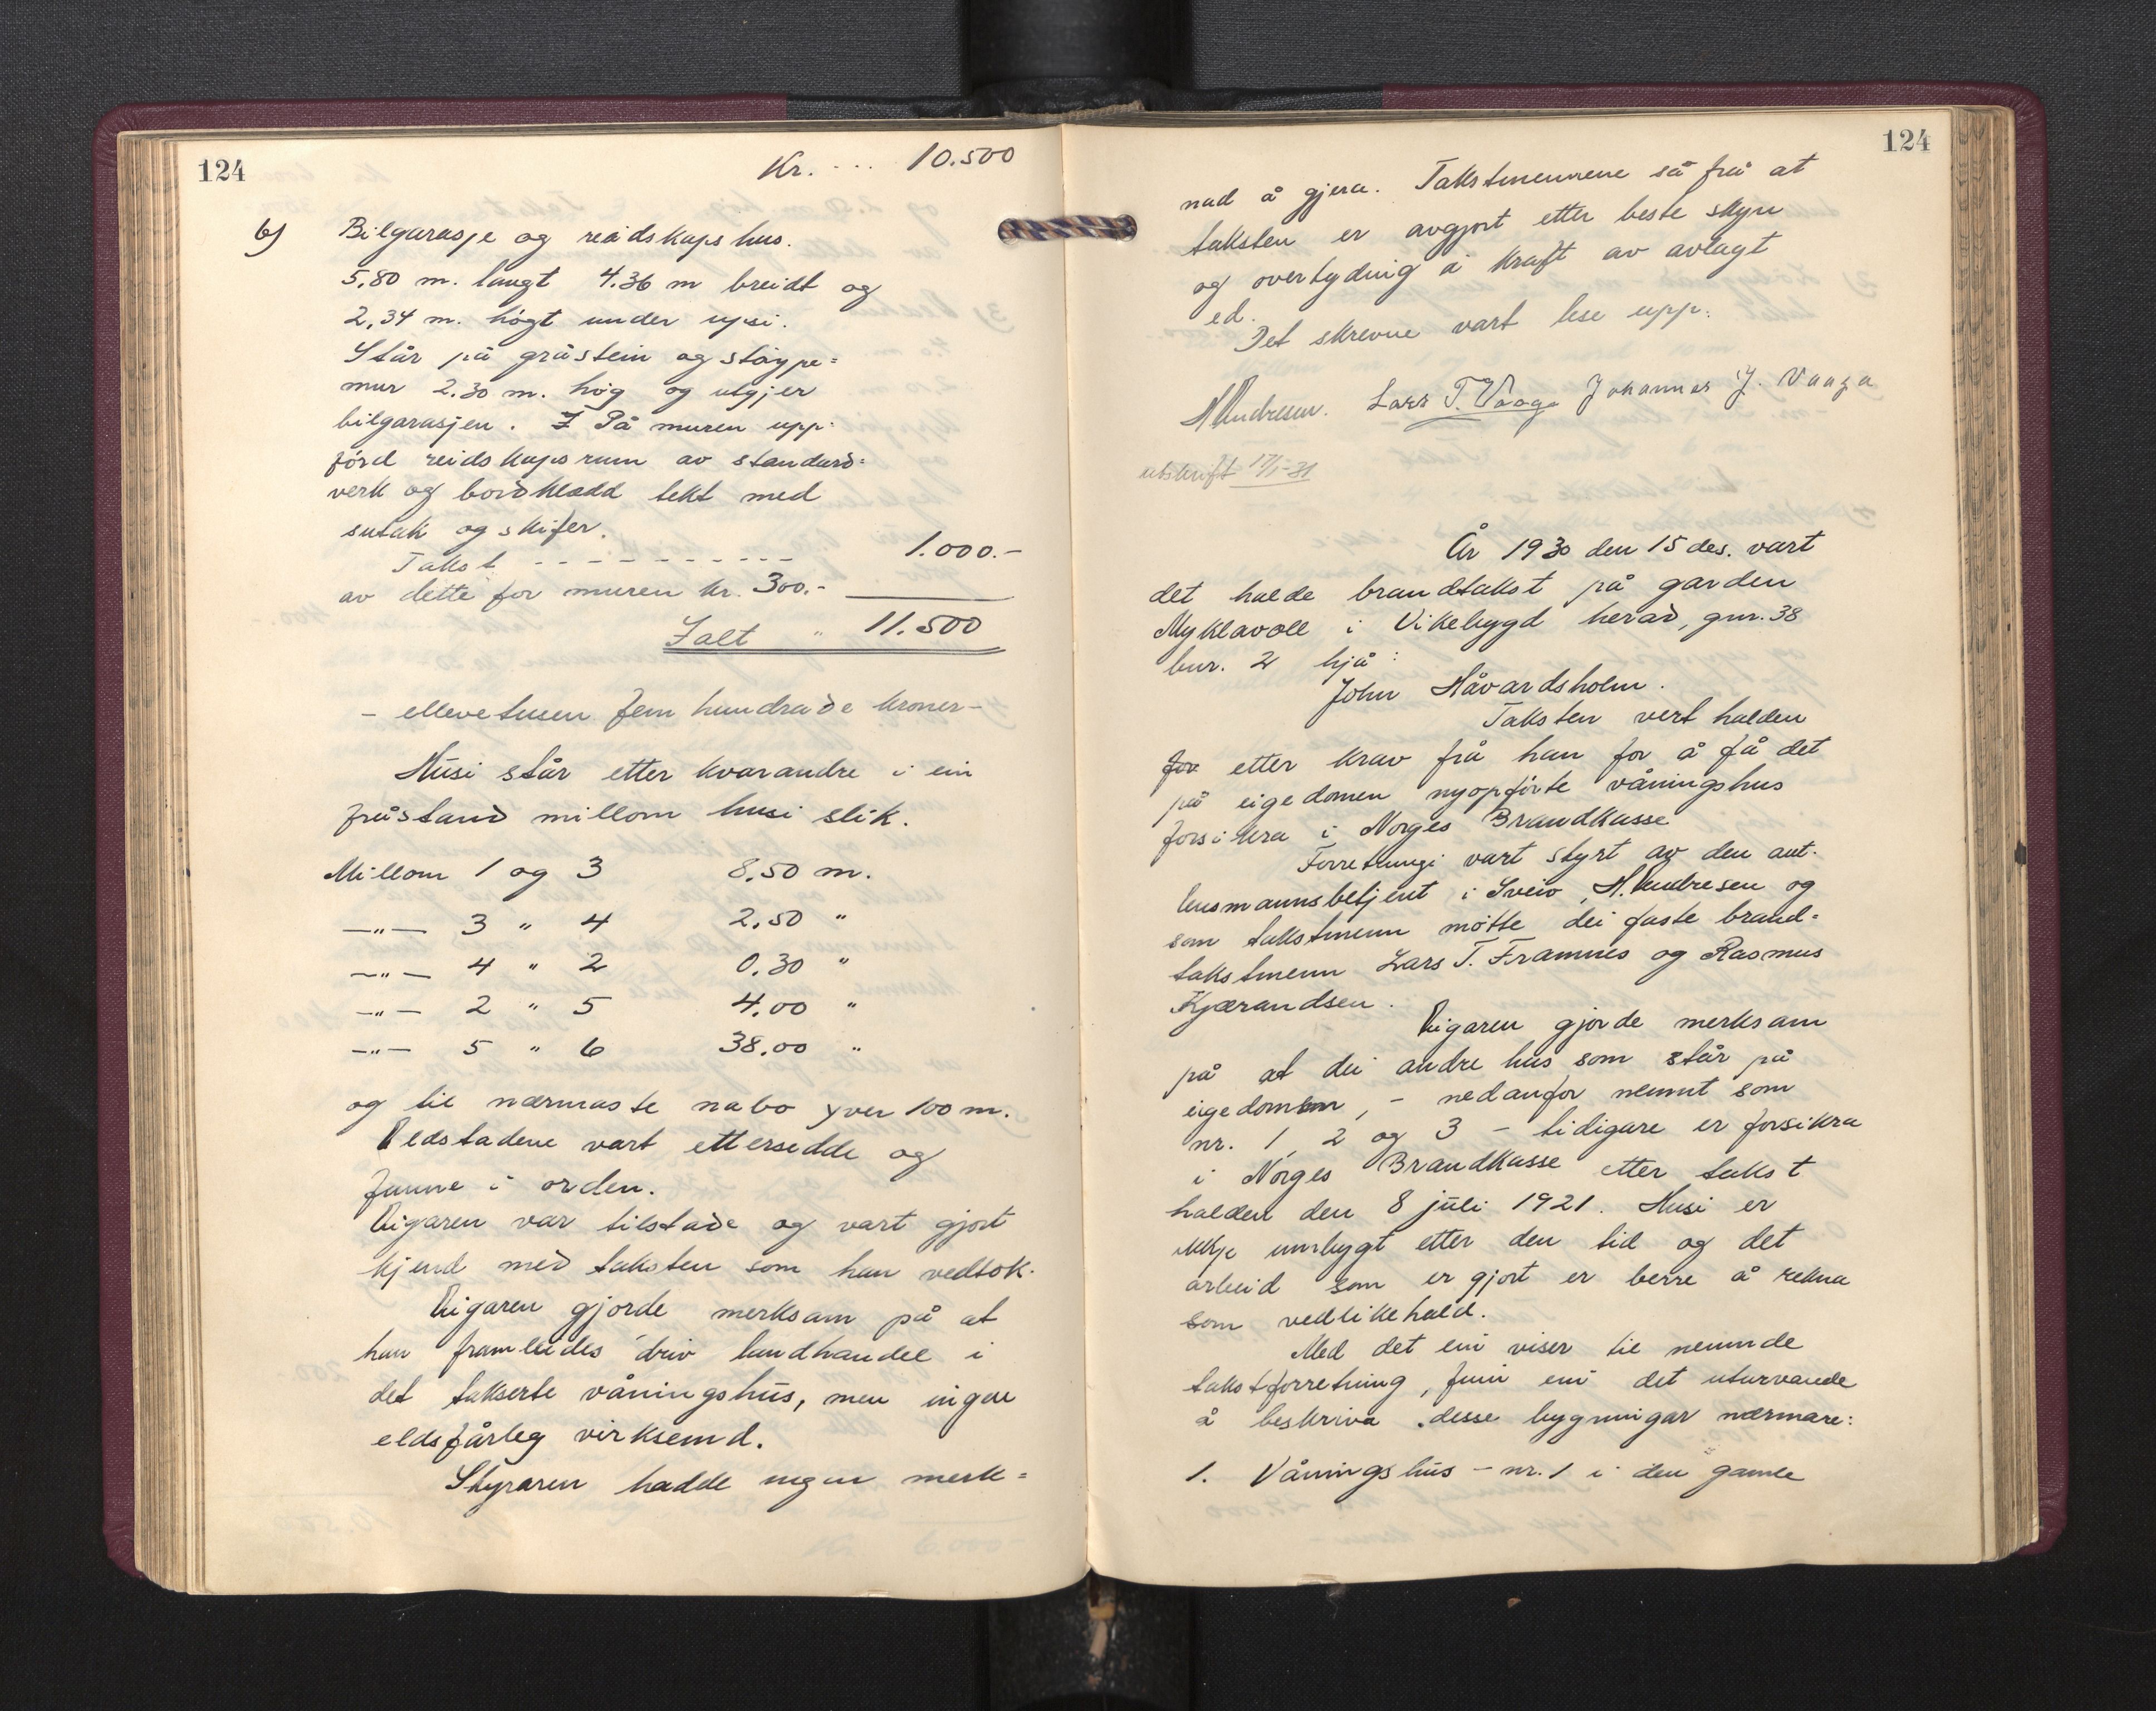 124
Kr. .... 10.500
6) Bilgarasje og reidskapshus.
5,80 m. langt 4.36 m breidt og
2,34 m. högt under upsi.
Står på gråstein og stöype=
mur 2.30 m. hög og utgjer
bilgarasjen. I På muren upp-
förd reidskapsrum av standard=
verk og bordklædd tekt med
sutak og skifer.
Takst - - - - - - - - - - 1.000.-
av dette for muren kr. 300.-
Ialt " 11.500
- ellevetusen fem hundrade kroner-
Husi står etter kvarandre i ein
fråstand millom husi slik.
Millom 1 og 3 8,50 m.
—"— 3 " 4 2,50 "
—"— 4 " 2 0.30 "
—"— 2 " 5 4,00 "
—"— 5 " 6 38,00 "
og til nærmaste nabo yver 100 m.
Eldstadene vart ettersedde og
funne i orden.
Eigaren var tilstade og vart gjort
kjend med taksten som han vedtok.
Eigaren gjorde merksam på at
han framleides driv landhandel i
det takserte våningshus, men ingen
eldsfårleg virksemd.
Styraren hadde ingen merk=
124
nad å gjera. Takstmennene sa frå at
taksten er avgjort etter beste skyn
og overtyding i kraft av avlagt
ed.
Det skrevne vart lese upp.
H Andresen. Lars T. Vaage Johannes J. Vaaga
utskrift 17/1-31
År 1930 den 15 des. vart
det halde brandtakst på garden
Myklavoll i Vikebygd herad, gnr. 38
bnr. 2 hjå:
John Håvardsholm.
Taksten vert halden
for etter krav frå han for å få det
på eigedomen nyopförte våningshus
forsikra i Norges Brandkasse
Forretningi vart styrt av den aut.
lensmannsbetjent i Sveio, H. Andresen og
som takstmenn mötte dei faste brand=
takstmenn Lars T. Framnes og Rasmus
Kjærandsen.
Eigaren gjorde merksam
på at dei andre hus som står på
eigedomen, - nedanfor nemnt som
nr. 1, 2 og 3 - tidigare er forsikra
i Norges Brandkasse etter takst
halden den 8 juli 1921. Husi er
ikkje umbygt etter den tid og det
arbeid som er gjort er berre å rekna
som vedlikehald.
Med det ein viser til nemnde
takstforretning, finn ein det uturvande
å beskriva desse bygningar nærmare:
1. Våningshus - nr. 1 i den gamle